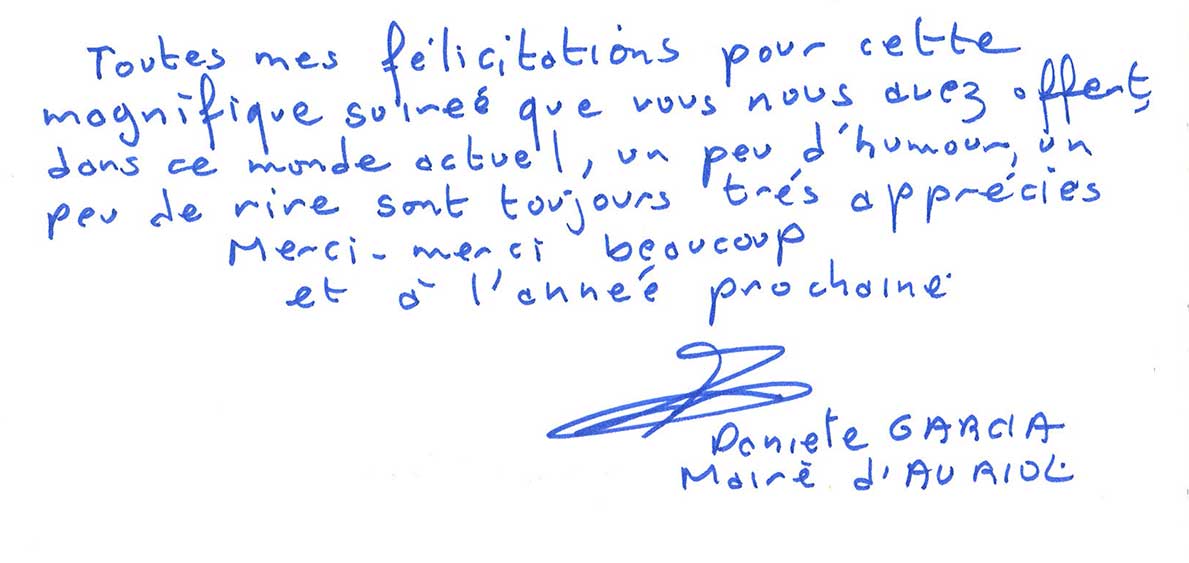 Toutes mes félicitations pour cette
magnifique soireé que vous nous avez offert,
dans ce monde actuel, un peu d'humour, un
peu de rire sont toujours trés appréciés
Merci - merci beaucoup
et à l'anneé prochaine.
Daniele GARCIA
Maire d'AURIOL